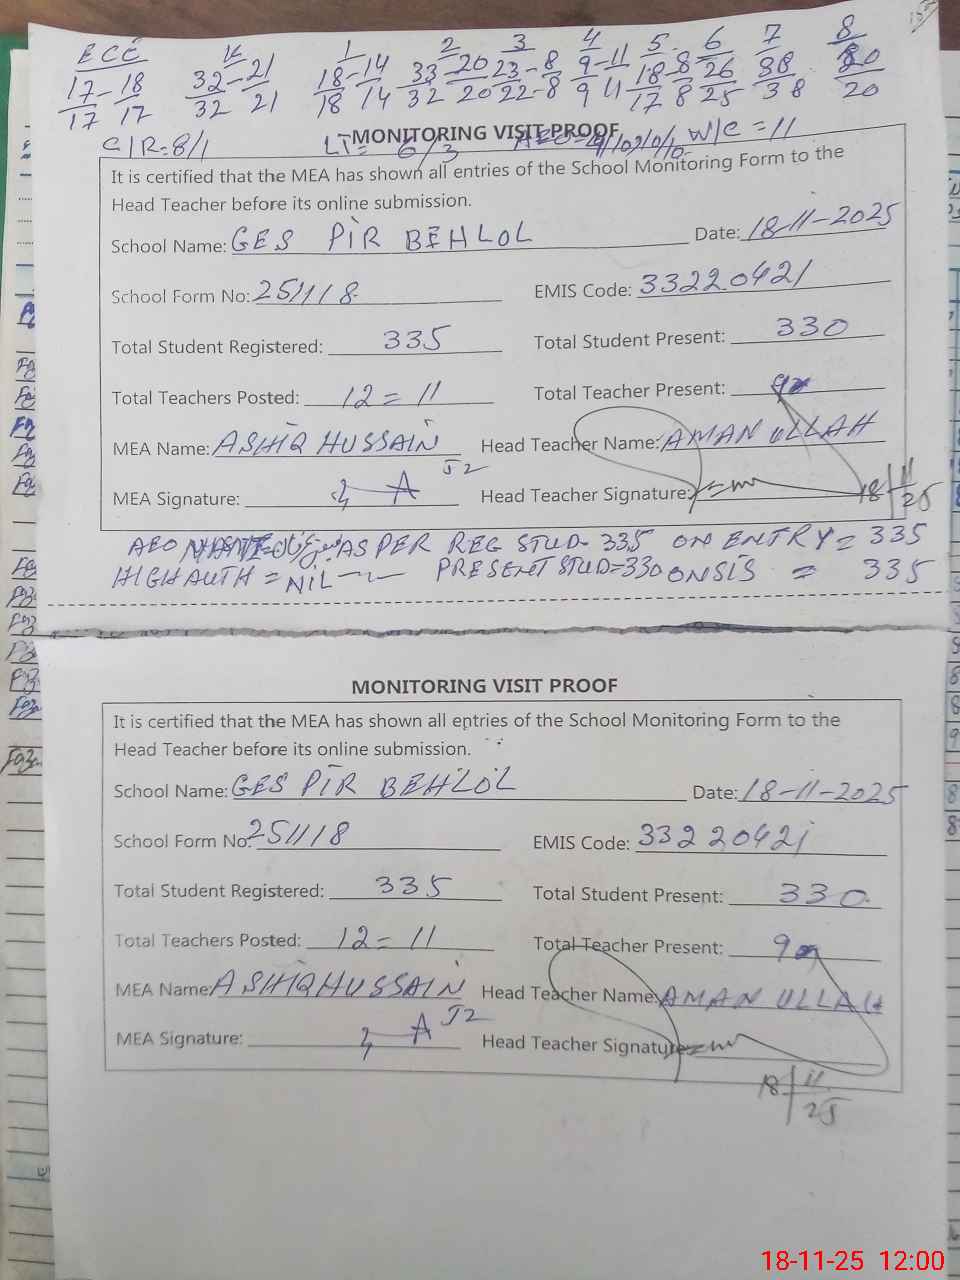 ECE K 1 2 3 4 5 6 7 8
17-18 32-21 18-14 33-20 23-8 9-11 18-8 26 38 20
17 17 32 21 18 14 32 20 22-8 9 11 17 8 25 38 20
C/R=8/1 LT= 6/3 W/C =11
MONITORING VISIT PROOF
It is certified that the MEA has shown all entries of the School Monitoring Form to the
Head Teacher before its online submission.
School Name: GES PIR BEHLOL Date: 18-11-2025
School Form No: 251118 EMIS Code: 33220421
Total Student Registered: 335 Total Student Present: 330
Total Teachers Posted: 12 = 11 Total Teacher Present:
MEA Name: ASHIQ HUSSAIN Head Teacher Name: AMAN ULLAH
MEA Signature: A J2 Head Teacher Signature: 18/11/25
AEO AS PER REG STUD= 335 ON ENTRY = 335
HIGH AUTH = NIL PRESENT STUD=330 ON SIS = 335
MONITORING VISIT PROOF
It is certified that the MEA has shown all entries of the School Monitoring Form to the
Head Teacher before its online submission.
School Name: GES PIR BEHLOL Date: 18-11-2025
School Form No: 251118 EMIS Code: 33220421
Total Student Registered: 335 Total Student Present: 330
Total Teachers Posted: 12 = 11 Total Teacher Present: 9
MEA Name: ASHIQ HUSSAIN Head Teacher Name: AMAN ULLAH
MEA Signature: A J2 Head Teacher Signature:
18/11/25
18-11-25 12:00